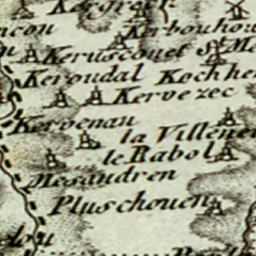 Kerbouhou
Kerusconet St Me
Keroudal Kochhe
Kervezec
Kervenau
la Villene
le Rabol
Mesaudren
Pluschouen